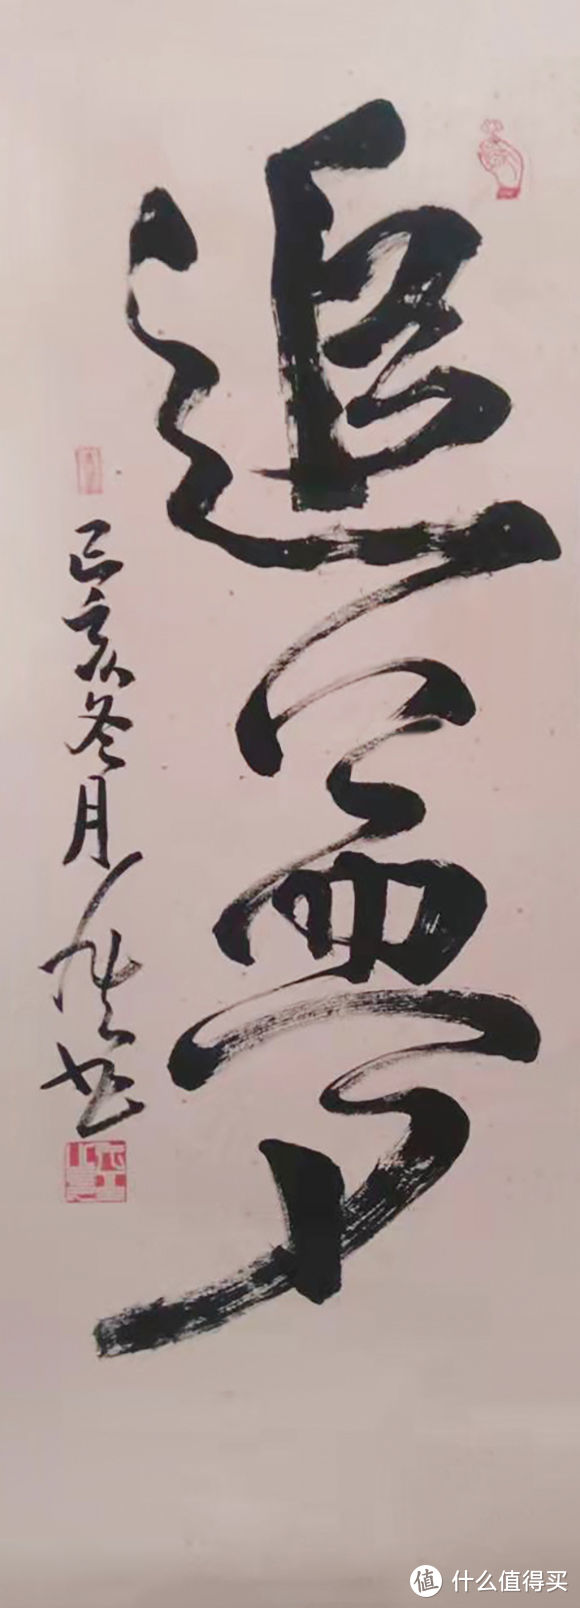 追夢
己亥冬月
书
什么值得买